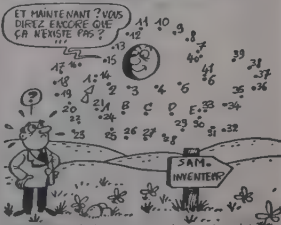 ET MAINTENANT ? VOUS
DIREZ ENCORE QUE
ÇA N'EXISTE PAS ?
11 10
12 9
13 8
7
14 15 40 39 38
17 16 41 37
18 1 2 3 4 5 6 36 35
19
20 21 A B C D E 33 34
22 24
23 25 26 27 28 29 30 31 32
?
SAM-
INVENTEUR